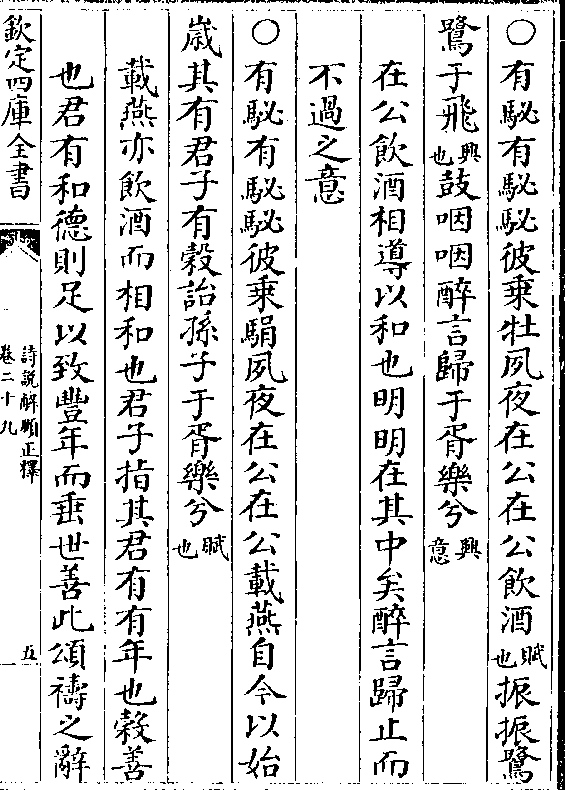 ○有駜有駜駜彼乗牡夙夜在公在公飲酒賦也振振鷺
鷺于飛興也鼓咽咽醉言歸于胥樂兮興意
在公飲酒相導以和也明明在其中矣醉言歸止而
不過之意
○有駜有駜駜彼乗駽夙夜在公在公載燕自今以始
歲其有君子有榖詒孫子于胥樂兮賦也
載燕亦飲酒而相和也君子指其君有有年也榖善
也君有和德則足以致豐年而垂世善此頌禱之辭
欽定四庫全書
詩說解頥正釋
卷二十九
五